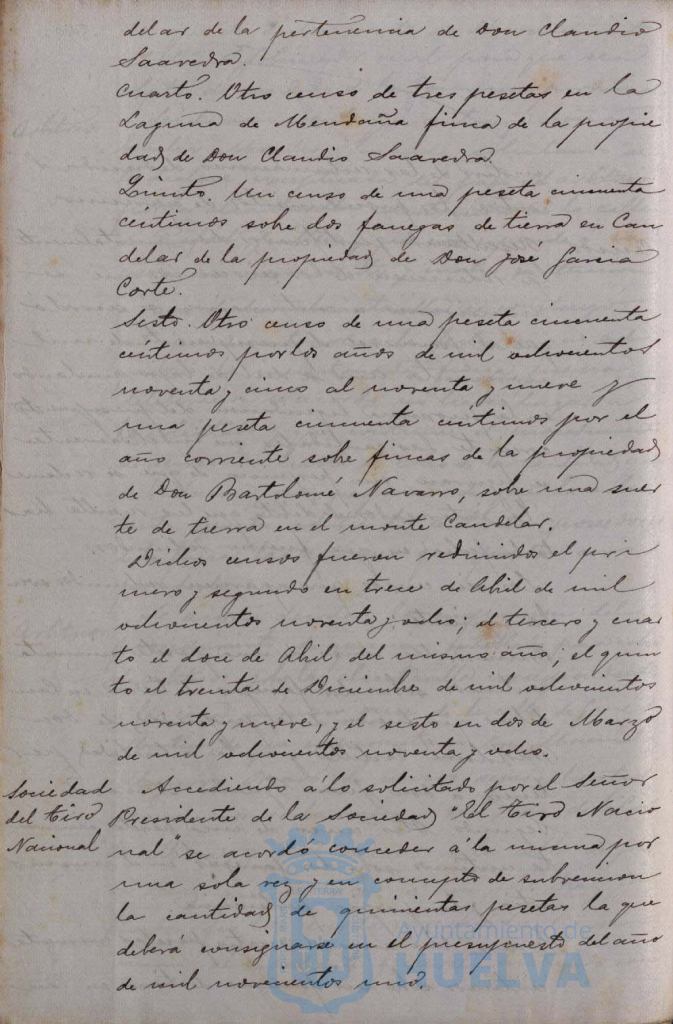 delar de la pertenencia de Don Claudio
Saavedra.
Cuarto. Otro censo de tres pesetas en la
Laguna de Mendaña finca de la propie
dad de Don Claudio Saavedra.
Quinto. Un censo de una peseta cincuenta
céntimos sobre dos fanegas de tierra en Can
delar de la propiedad de Don José Garcia
Corté.
Sesto. Otro censo de una peseta cincuenta
céntimos por los años de mil ochocientos
noventa y cinco al noventa y nueve y
una peseta cincuenta céntimos por el
año corriente sobre fincas de la propiedad
de Don Bartolomé Navarro, sobre una suer
te de tierra en el monte Candelar.
Dichos censos fueron redimidos el pri
mero y segundo en trece de Abril de mil
ochocientos noventa y ocho; el tercero y cuar
to el doce de Abril del mismo año; el quin
to el treinta de Diciembre de mil ochocientos
noventa y nueve, y el sesto en dos de Marzo
de mil ochocientos noventa y ocho.
Sociedad
del tiro
Nacional
Accediendo á lo solicitado por el Señor
Presidente de la Sociedad "El tiro Nacio
nal" se acordó conceder á la misma por
una sola vez y en concepto de subvencion
la cantidad de quinientas pesetas la que
deberá consignarse en el presupuesto del año
de mil novecientos uno.
Ayuntamiento de
HUELVA